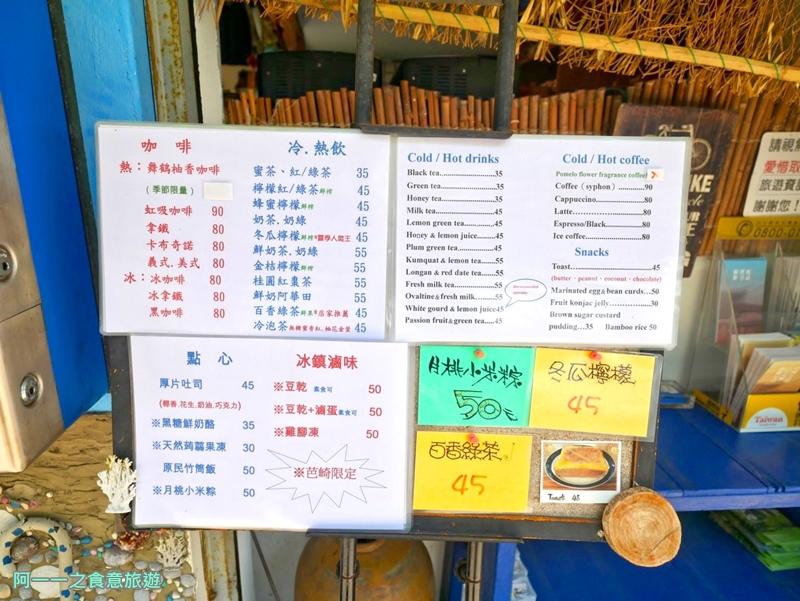 咖 啡
熱：舞鶴柚香咖啡
（季節限量）
虹吸咖啡 90
拿鐵 80
卡布奇諾 80
義式.美式 80
冰：冰咖啡 80
冰拿鐵 80
黑咖啡 80
冷.熱飲
蜜茶、紅/綠茶 35
檸檬紅/綠茶鮮榨 45
蜂蜜檸檬鮮榨 45
奶茶.奶綠 45
冬瓜檸檬鮮榨 45
鮮奶茶.奶綠 55
金桔檸檬鮮榨 55
桂圓紅棗茶 55
鮮奶阿華田 55
百香綠茶鮮果 店家推薦 45
冷泡茶 45
Cold / Hot drinks
Black tea..................35
Green tea..................35
Honey tea..................35
Milk tea..................45
Lemon green tea..........45
Honey & lemon juice.....45
Plum green tea............45
Kumquat & lemon tea......55
Longan & red date tea......55
Fresh milk tea..............55
Ovaltine&fresh milk.........55
White gourd & lemon juice45
Passion fruit&green tea.....45
Cold / Hot coffee
Pomelo flower fragrance coffee
Coffee (syphon)............90
Cappuccino..................80
Latte..................80
Espresso/Black............80
Ice coffee..................80
Snacks
Toast........................45
(butter、peanut、coconut、chocolate)
Marinated egg&bean curds...50
Fruit konjac jelly............30
Brown sugar custard
pudding…35 Bamboo rice 50
點 心
厚片吐司 45
(椰香.花生.奶油.巧克力)
※黑糖鮮奶酪 35
※天然蒟蒻果凍 30
原民竹筒飯 50
※月桃小米粽 50
冰鎮滷味
※豆乾 素食可 50
※豆乾+滷蛋素食可 50
※雞腳凍 50
※芭崎限定
月桃小米粽
50元
冬瓜檸檬
45
百香綠茶
45
Toast 45
請視
愛惜取
旅遊資
謝謝您！
0800-0
Taiwan
阿一一之食意旅遊